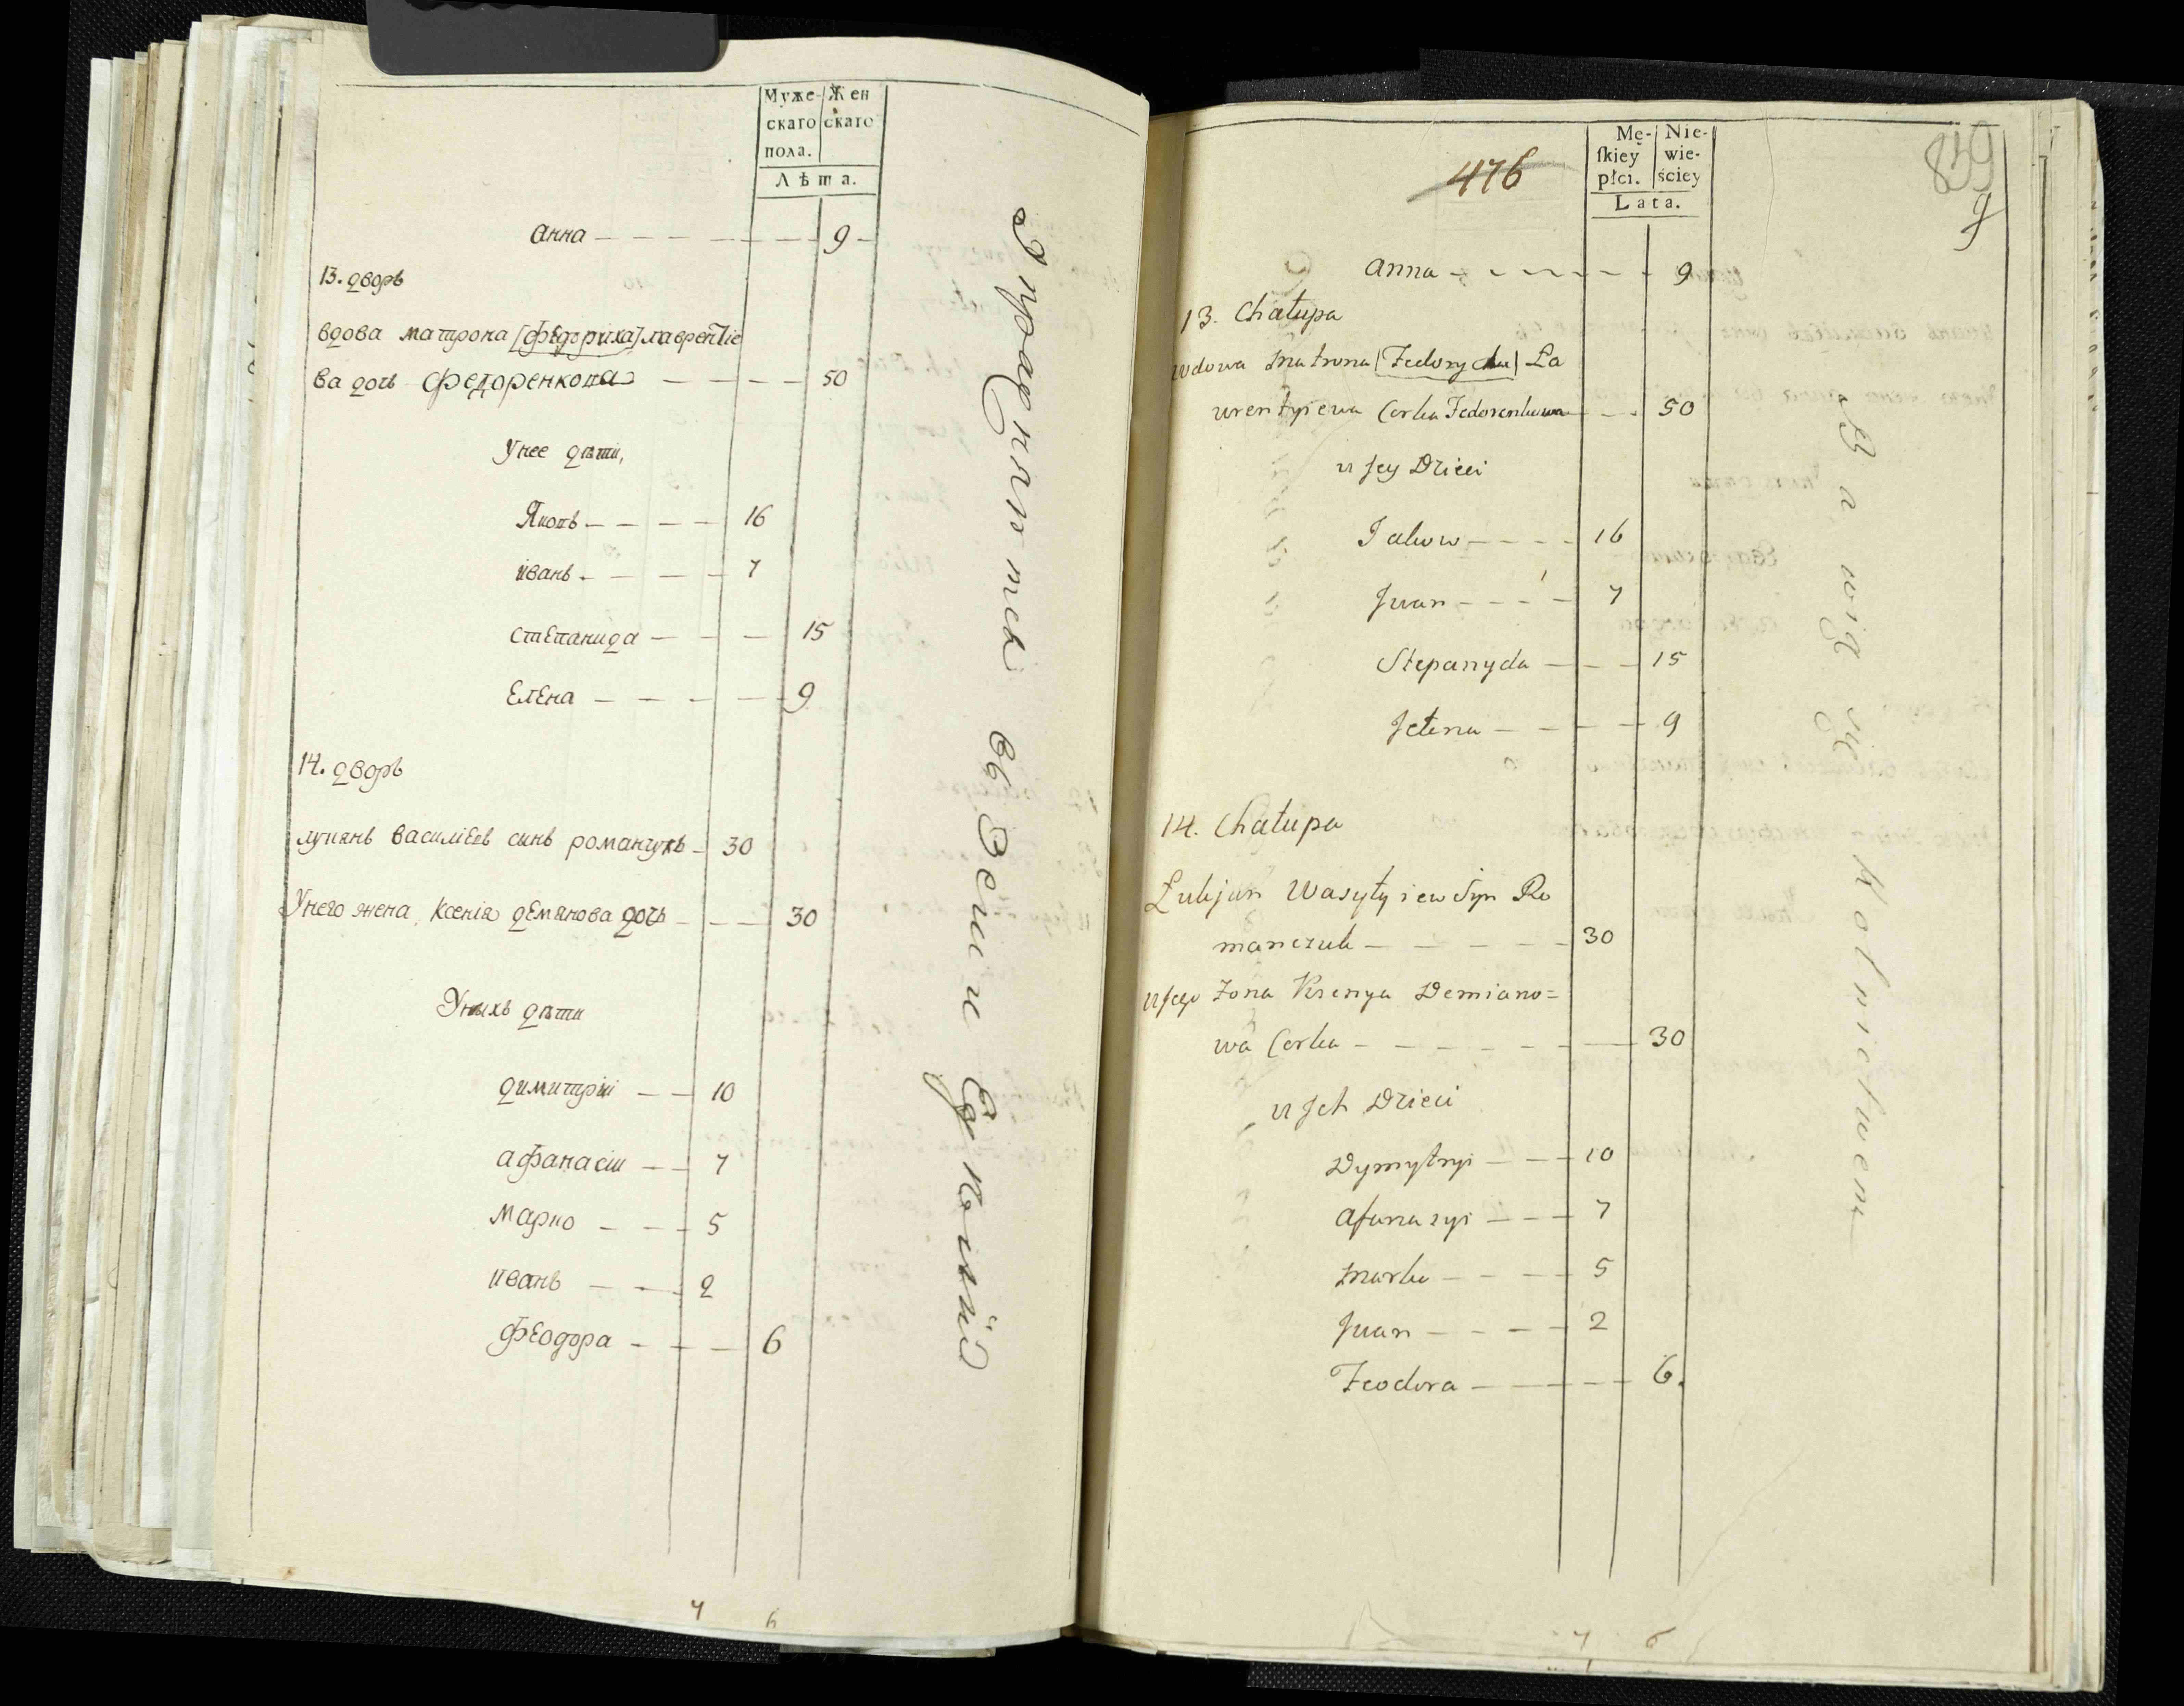 Муже- Жен
скаго скаго
пола.
Лѣта.
Анна — — — — — 9 -
13. дворъ
вдова матрона [федориха] лаврентіе
ва дочь федоренкова — — — — 50
Унее дѣти,
Яковъ — — — — 16
иванъ - — — — 7
степанида — — — 15
Елена — — — — 9
14. дворъ
лукянъ василіевъ сынъ романчукъ - 30
Унего жена Ксенія демянова дочь - — — 30
Унихъ дѣти
димитрій — — 10
афанасій — — 7
марко — — 5
иванъ — — 2
феодора — — — 6
Упражняется въ Земледѣліи
4 6
476
839
9
Mę- Nie-
ſkiey wie-
płci. ściey
Lata.
Anna - - - - - - 9
13. Chałupa
Wdowa Matrona | Fedorycha | Ła
wrentyiewa Corka Fedorenkowa - - 50
u Jey Dzieci
Jakow — — — — 16
Jwan — — — — 7
Stepanyda — — — 15
Jełena — — — — 9
14. Chałupa
Łukjan Wasyłyiew Syn Ro
manczuk — — — — — 30
u Jego Żona Ksenya Demiano=
wa Corka — — — — — — 30
u Jch Dzieci
Dymytryi — — — 10
Afanazyi — — — 7
Marko — — — — 5
Jwan — — — — 2
Feodora — — — — 6.
Bawią się Rolnictwem
4 6